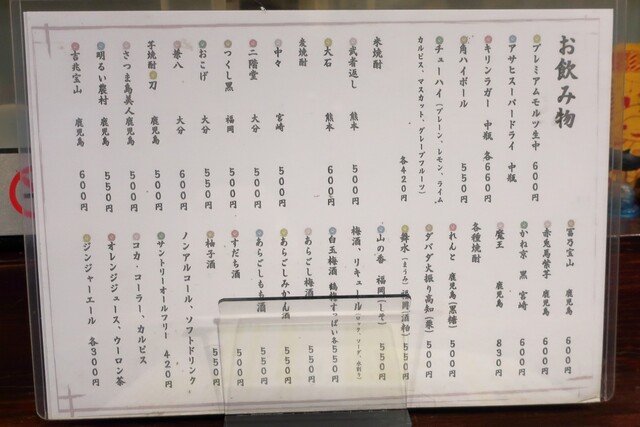 お飲み物
プレミアムモルツ生中 600円
アサヒスーパードライ 中瓶
キリンラガー 中瓶 各660円
角ハイボール 550円
チューハイ(プレーン、レモン、ライム
カルピス、マスカット、グレープフルーツ) 各420円
米焼酎
武者返し 熊本 500円
大石 熊本 600円
麦焼酎
中々 宮崎 500円
二階堂 大分 500円
つくし黒 福岡 500円
おこげ 大分 550円
兼八 大分 600円
芋焼酎
刀 鹿児島 500円
さつま島美人 鹿児島 500円
明るい農村 鹿児島 550円
吉兆宝山 鹿児島 600円
冨乃宝山 鹿児島 600円
赤兎馬紫芋 鹿児島 600円
かね京 黒 宮崎 600円
魔王 鹿児島 830円
各種焼酎
れんと 鹿児島(黒糖) 500円
ダバダ火振り 高知(栗) 500円
舞水(まうみ) 福岡(酒粕) 550円
山の香 福岡(しそ) 550円
梅酒、リキュール(ロック、ソーダ、水割り)
白玉梅酒 鶴梅すっぱい 各550円
あらごし梅酒 550円
あらごしみかん酒 550円
あらごしもも酒 550円
すだち酒 500円
柚子酒 550円
ノンアルコール、ソフトドリンク
サントリーオールフリー 420円
コカ・コーラー、カルピス
オレンジジュース、ウーロン茶
ジンジャーエール 各300円